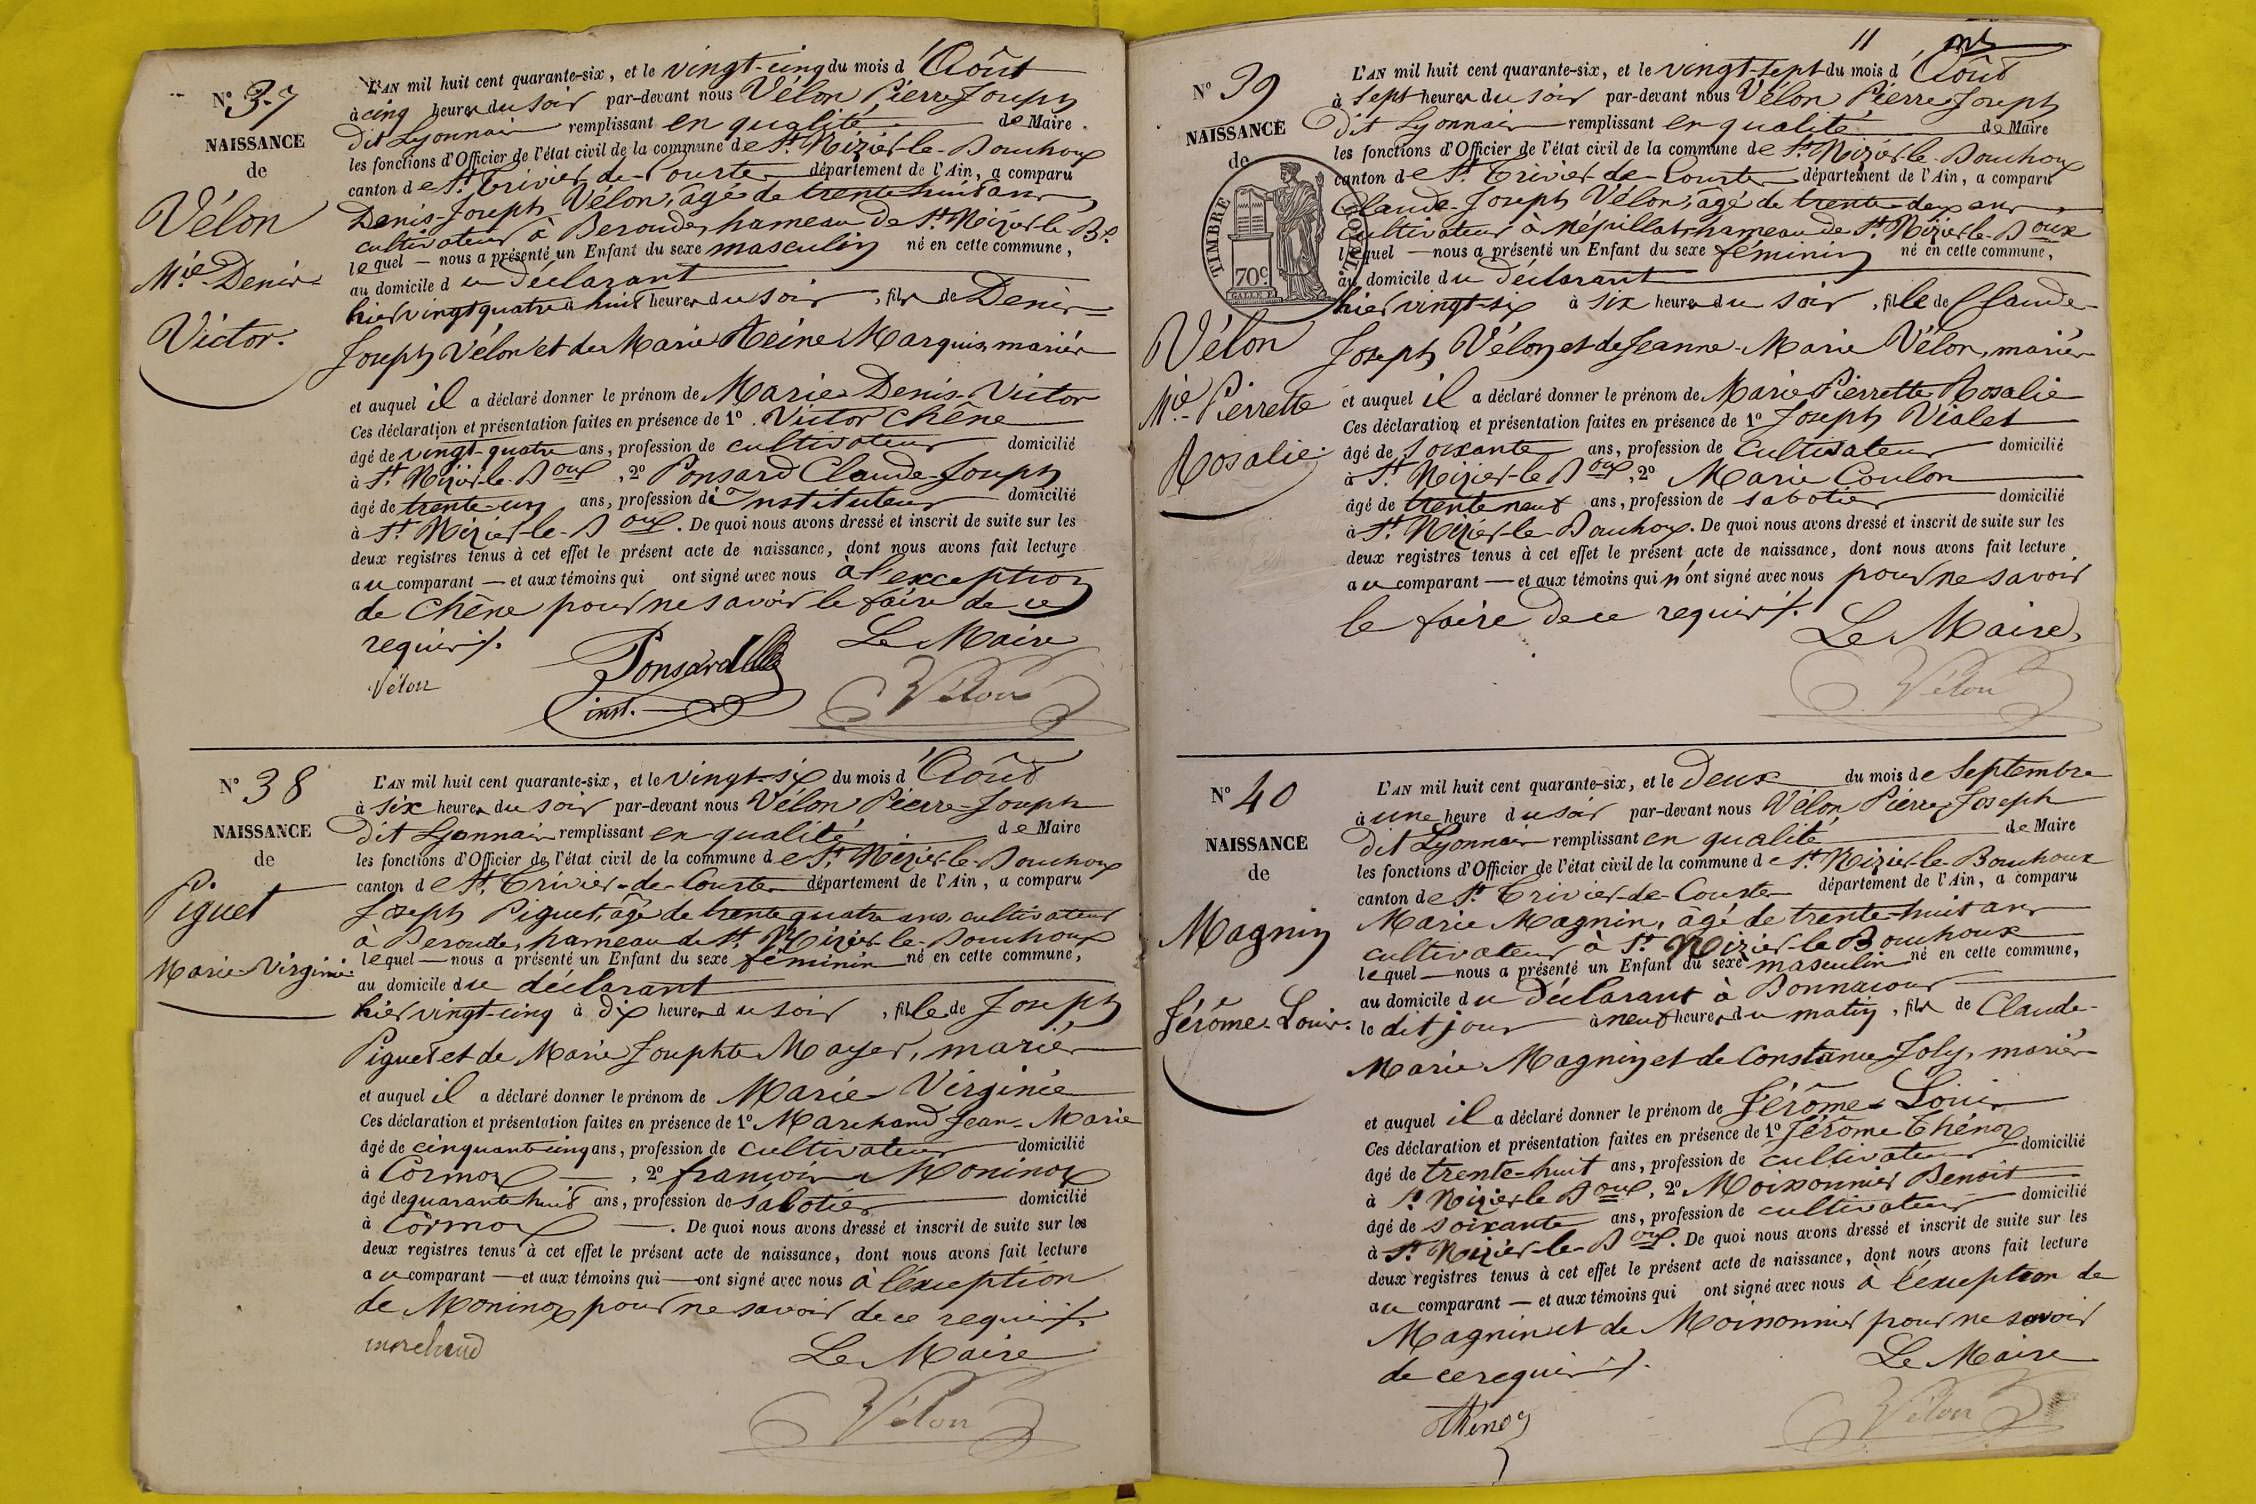 N° 37
NAISSANCE
de
Vélon
Mie Denis-
Victor.
L'AN mil huit cent quarante-six, et le vingt-cinq du mois d'Août
à cinq heures du soir par-devant nous Vélon Pierre Joseph
dit Lyonnais remplissant en qualité de Maire
les fonctions d'Officier de l'état civil de la commune de St. Nizier-le-Bouchoux
canton de St. Trivier-de-Courtes département de l'Ain, a comparu
Denis-Joseph Vélon, âgé de trente huit ans,
cultivateur à Beroude, hameau de St. Nizier-le-Bx.
lequel — nous a présenté un Enfant du sexe masculin né en cette commune,
au domicile du déclarant
hier vingt quatre à huit heures du soir, fils de Denis-
Joseph Vélon et de Marie Reine Marquis, mariés
et auquel il a déclaré donner le prénom de Marie Denis-Victor
Ces déclaration et présentation faites en présence de 1° Victor Chêne
âgé de vingt-quatre ans, profession de cultivateur domicilié
à St. Nizier-le-Boux, 2° Ponsard Claude-Joseph
âgé de trente-un ans, profession d'Instituteur domicilié
à St. Nizier-le-Boux. De quoi nous avons dressé et inscrit de suite sur les
deux registres tenus à cet effet le présent acte de naissance, dont nous avons fait lecture
au comparant — et aux témoins qui ont signé avec nous à l'exception
de Chêne pour ne savoir le faire de ce
requis.
Le Maire
Vélon
Ponsard
inst.
Vélon
N° 38
NAISSANCE
de
Piguet
Marie-Virginie
L'AN mil huit cent quarante-six, et le vingt-six du mois d'Août
à six heures du soir par-devant nous Vélon Pierre-Joseph
dit Lyonnais remplissant en qualité de Maire
les fonctions d'Officier de l'état civil de la commune de St. Nizier-le-Bouchoux
canton de St. Trivier-de-Courtes département de l'Ain, a comparu
Joseph Piguet, âgé de trente quatre ans, cultivateur
à Beroude, hameau de St. Nizier-le-Bouchoux
lequel — nous a présenté un Enfant du sexe féminin né en cette commune,
au domicile du déclarant
hier vingt-cinq à dix heures du soir, fille de Joseph
Piguet et de Marie Josephte Mayer, mariés
et auquel il a déclaré donner le prénom de Marie Virginie
Ces déclaration et présentation faites en présence de 1° Marchand Jean-Marie
âgé de cinquante cinq ans, profession de cultivateur domicilié
à Cormoz —, 2° françois Moninox
âgé de quarante huit ans, profession de sabotier domicilié
à Cormoz —. De quoi nous avons dressé et inscrit de suite sur les
deux registres tenus à cet effet le présent acte de naissance, dont nous avons fait lecture
au comparant — et aux témoins qui — ont signé avec nous à l'exception
de Moninox pour ne savoir de ce requis.
marchand
Le Maire
Vélon
11
N° 39
NAISSANCE
de
TIMBRE ROYAL
70 c.
Vélon
Mie Pierrette
Rosalie
L'AN mil huit cent quarante-six, et le vingt-sept du mois d'Août
à sept heures du soir par-devant nous Vélon Pierre Joseph
dit Lyonnais remplissant en qualité de Maire
les fonctions d'Officier de l'état civil de la commune de St. Nizier-le-Bouchoux
canton de St. Trivier-de-Courtes département de l'Ain, a comparu
Claude-Joseph Vélon, âgé de trente-deux ans,
cultivateur à Mépillat, hameau de St. Nizier-le-Boux
lequel — nous a présenté un Enfant du sexe féminin né en cette commune,
au domicile du déclarant
hier vingt-six à six heures du soir, fille de Claude-
Joseph Vélon et de Jeanne-Marie Vélon, mariés
et auquel il a déclaré donner le prénom de Marie Pierrette Rosalie
Ces déclaration et présentation faites en présence de 1° Joseph Vialet
âgé de soixante ans, profession de Cultivateur domicilié
à St. Nizier-le-Boux, 2° Marie Coulon
âgé de trente neuf ans, profession de sabotier domicilié
à St. Nizier-le-Bouchoux. De quoi nous avons dressé et inscrit de suite sur les
deux registres tenus à cet effet le présent acte de naissance, dont nous avons fait lecture
au comparant — et aux témoins qui n'ont signé avec nous pour ne savoir
le faire de ce requis.
Le Maire,
Vélon
N° 40
NAISSANCE
de
Magnin
Jérôme-Louis.
L'AN mil huit cent quarante-six, et le deux du mois de Septembre
à une heure du soir par-devant nous Vélon, Pierre-Joseph
dit Lyonnais remplissant en qualité de Maire
les fonctions d'Officier de l'état civil de la commune de St. Nizier-le-Bouchoux
canton de St. Trivier-de-Courtes département de l'Ain, a comparu
Marie Magnin, âgé de trente-huit ans
cultivateur à St. Nizier-le-Bouchoux
lequel — nous a présenté un Enfant du sexe masculin né en cette commune,
au domicile du déclarant à Bonnacour
le dit jour à neuf heures du matin, fils de Claude-
Marie Magnin et de Constance Joly, mariés
et auquel il a déclaré donner le prénom de Jérôme-Louis
Ces déclaration et présentation faites en présence de 1° Jérôme Thénoz
âgé de trente-huit ans, profession de cultivateur domicilié
à St. Nizier-le-Boux, 2° Moissonnier Benoit
âgé de soixante ans, profession de cultivateur domicilié
à St. Nizier-le-Boux. De quoi nous avons dressé et inscrit de suite sur les
deux registres tenus à cet effet le présent acte de naissance, dont nous avons fait lecture
au comparant — et aux témoins qui ont signé avec nous à l'exception de
Magnin et de Moissonnier pour ne savoir
de ce requis.
Le Maire
Thénoz
Vélon